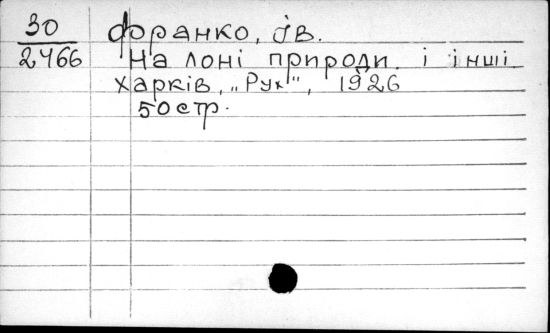 30
2466
Франко, Ів.
На лоні природи. і інші.
Харків, „Рух", 1926
50 стр.